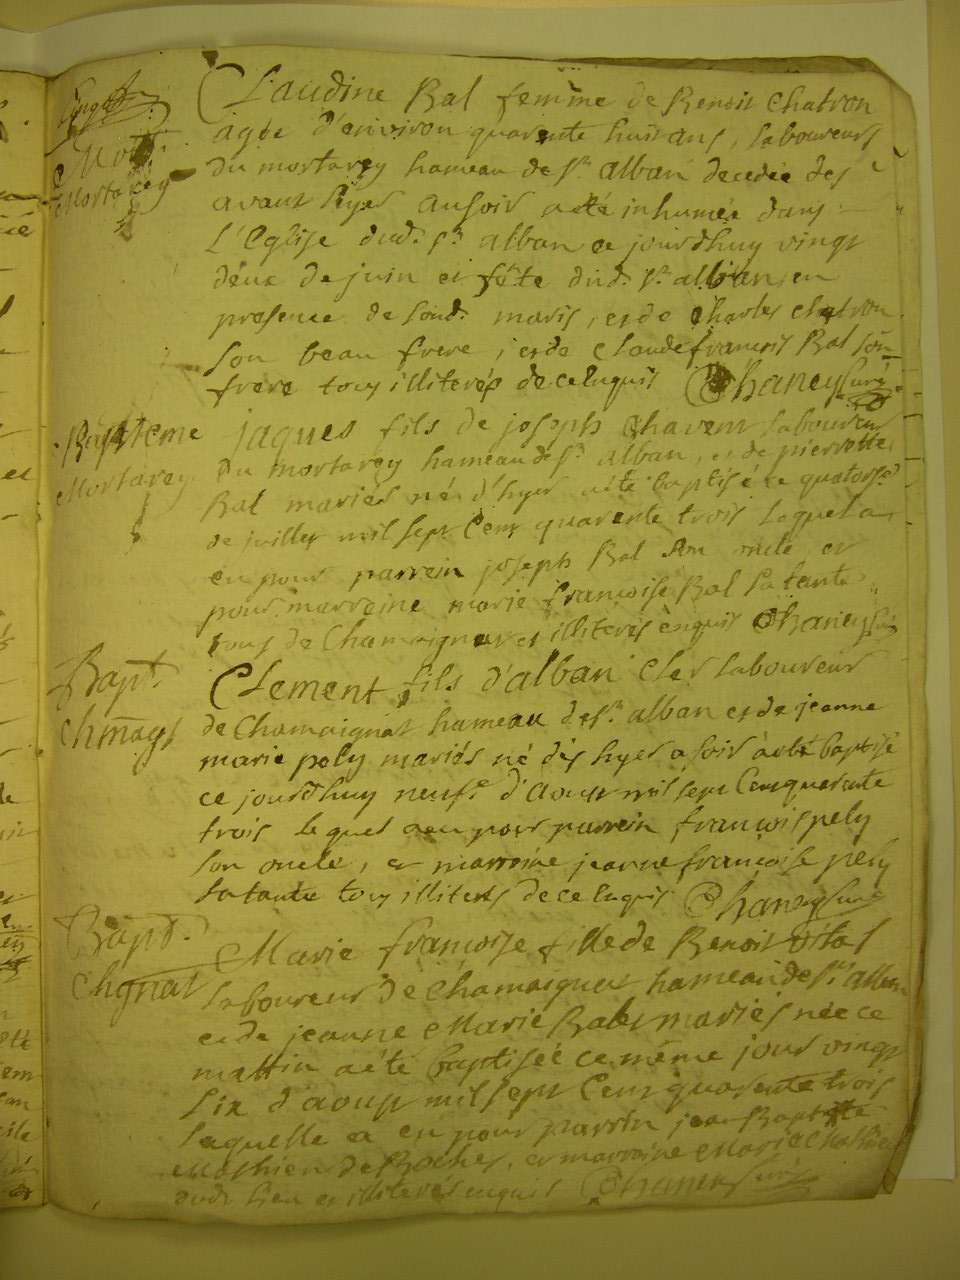 Claudine Bal femme de Benoit Chatron
agée d'environ quarente huit ans, laboureurs
Mort.
du mortarey hameau de St alban decedée des
Mortarey
avant hyer au soir a eté inhumée dans
L'Eglise dud. St alban ce jourdhuy vingt
deux de juin et fête dud. St alban, en
presence de sond. maris, et de Charles Chatron
son beau frere, et de Claude françois Bal son
frere tous illiterés de ce enquis Chaney curé
Bapteme
jaques fils de joseph Chavent laboureur
Mortarey
du mortarey hameau de St alban, et de pierrette
Bal mariés né d'hyer a eté baptisé ce quatorse
de juillet mil sept Cent quarente trois lequel a
eu pour parrein joseph Bal son oncle et
pour marraine marie françoise Bal sa tante
tous de Chamaignat et illiterés enquis Chaney curé
Bapt.
Clement fils d'alban Cler laboureur
Chmagt
de Chamaignat hameau de St alban et de jeanne
marie pely mariés né dès hyer a soir a eté baptisé
ce jourdhuy neufe d'aoust mil sept Cent quarente
trois lequel a eu pour parrein françois pely
son oncle, et marreine jeanne françoise pely
sa tante tous illiterés de ce enquis Chaney curé
Bapt.
Marie françoise fille de Benoit
Chgnat
laboureur de Chamaignat hameau de St alban
et de jeanne Marie mariés née ce
mattin a eté baptisée ce même jour vingt
six d'aoust mil sept Cent quarente trois
laquelle a eu pour parrin jean Baptiste
Mathieu de et marraine Marie
dud. lieu et illiterés enquis Chaney curé